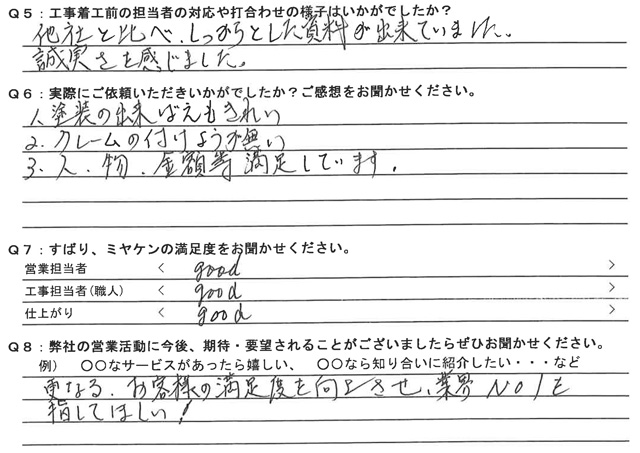 Q5：工事着工前の担当者の対応や打合わせの様子はいかがでしたか？
他社と比べ、しっかりとした資料が出来ていました。
誠実さを感じました。
Q6：実際にご依頼いただきいかがでしたか？ご感想をお聞かせください。
1. 塗装の出来ばえもきれい
2. クレームの付けようが無い
3. 人、物、金額等満足しています。
Q7：ずばり、ミヤケンの満足度をお聞かせください。
営業担当者 ＜ good ＞
工事担当者(職人) ＜ good ＞
仕上がり ＜ good ＞
Q8：弊社の営業活動に今後、期待・要望されることがございましたらぜひお聞かせください。
例） 〇〇なサービスがあったら嬉しい、 〇〇なら知り合いに紹介したい・・・など
更なる、お客様の満足度を向上させ、業界No1を
指してほしい！